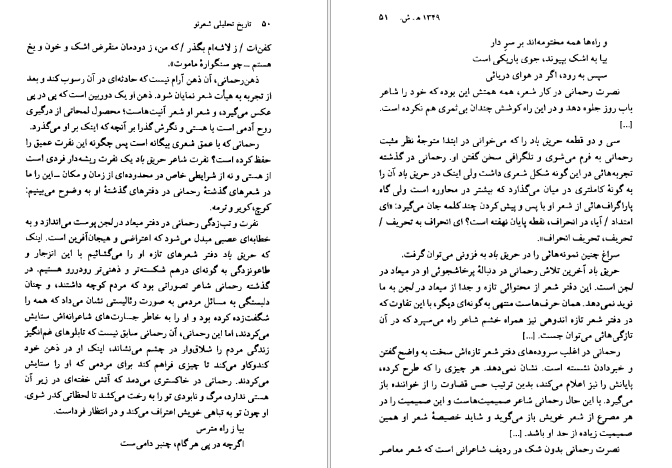 ۵۰ تاریخ تحلیلی شعر نو
کفن‌ات / ز لاشه‌ام بگذر / که من، ز دودمان منقرض اشک و خون و یخ
هستم ــ چو سنگوارهٔ ماموت».
ذهن رحمانی، آن ذهن آرام نیست که حادثه‌ای در آن رسوب کند و بعد
از تجربه به هیأت شعر نمایان شود. ذهن او یک دوربین است که پی در پی
عکس می‌گیرد، و شعر او شعر آنیت‌هاست؛ محصول لمحاتی از درگیری
روح آدمی است با هستی و نگرش گذرا بر آنچه که اینک بر او می‌گذرد.
رحمانی که با عمق شعری بیگانه است پس چگونه این نفرت عمیق را
حفظ کرده است؟ نفرت شاعر حریق باد یک نفرت ریشه‌دار فردی است
از هستی و نه از شرایطی خاص در محدوده‌ای از زمان و مکان ــ این را ما
در شعرهای گذشتهٔ رحمانی در دفترهای گذشتهٔ او به وضوح می‌بینیم:
کوچ، کویر و ترمه.
نفرت و تب‌زدگی رحمانی در دفتر میعاد در لجن پوست می‌اندازد و به
خطابه‌ای عصبی مبدل می‌شود که اعتراضی و هیجان‌آفرین است. اینک
که حریق باد دفتر شعرهای تازه او را می‌گشائیم با این انزجار و
طاعون‌زدگی به گونه‌ای درهم شکسته‌تر و ذهنی‌تر رودررو هستیم. در
گذشته رحمانی شاعر تصوراتی بود که مردم کوچه داشتند، و چنان
دلبستگی به مسائل مردمی به صورت رئالیستی نشان می‌داد که همه را
شگفت‌زده کرده بود و او را به خاطر جسارت‌های شاعرانه‌اش ستایش
می‌کردند، اما این رحمانی، آن رحمانی سابق نیست که تابلوهای غم‌انگیز
زندگی مردم را شلاق‌وار در چشم می‌نشاند، اینک او در ذهن خود
کندوکاو می‌کند تا چیزی فراهم کند برای مردمی که او را ستایش
می‌کردند. رحمانی در خاکستری می‌دمد که آتش خفته‌ای در زیر آن
هستی ندارد، مرگ و نابودی تو را به رخت می‌کشد تا لحظاتی کدر شوی.
او چون تو به تباهی خویش اعتراف می‌کند و در انتظار فرداست.
بیا ز راه مترس
اگرچه در پی هر گام، چنبر دامی‌ست
۱۳۴۹ ه‍. ش. ۵۱
و راه‌ها همه مختومه‌اند بر سر دار
بیا به اشک بپیوند، جوی باریکی است
سپس به رود، اگر در هوای دریائی
نصرت رحمانی در کار شعر، همه همتش این بوده که خود را شاعر
باب روز جلوه دهد و در این راه کوشش چندان بی‌ثمری هم نکرده است.
[...]
سی و دو قطعه حریق باد را که می‌خوانی در ابتدا متوجهٔ نظر مثبت
رحمانی به فرم می‌شوی و تلگرافی سخن گفتن او. رحمانی در گذشته
تجربه‌هائی در این گونه شکل شعری داشت ولی اینک در حریق باد آن را
به گونهٔ کاملتری در میان می‌گذارد که بیشتر در محاوره است ولی گاه
پاراگراف‌هائی از شعر او با پس و پیش کردن چند کلمه جان می‌گیرد: «ای
امتداد / آیا، در انحراف، نقطه پایان نهفته است؟ ای انحراف به تحریف /
تحریف، تحریف انحراف».
سراغ چنین نمونه‌هائی را در حریق باد به فزونی می‌توان گرفت.
حریق باد آخرین تلاش رحمانی در دنبالهٔ پرخاشجوئی او در میعاد در
لجن است. این دفتر شعر از محتوائی تازه و جدا از میعاد در لجن به ما
نوید نمی‌دهد. همان حرف‌هاست منتهی به گونه‌ای دیگر، با این تفاوت که
در دفتر شعر تازه اندوهی نیز همراه خشم شاعر راه می‌سپرد که در آن
تازگی‌هائی می‌توان جست. [...]
رحمانی در اغلب سروده‌های دفتر شعر تازه‌اش سخت به واضح گفتن
و خبر دادن نشسته است. نشان نمی‌دهد. هر چیزی را که طرح کرده،
پایانش را نیز اعلام می‌کند، بدین ترتیب حس قضاوت را از خواننده باز
می‌گیرد. با این حال رحمانی شاعر صمیمیت‌هاست و این صمیمیت را در
هر مصرع از شعر خویش باز می‌گوید و شاید خصیصهٔ شعر او همین
صمیمیت زیاده از حد او باشد. [...]
نصرت رحمانی بدون شک در ردیف شاعرانی است که شعر معاصر